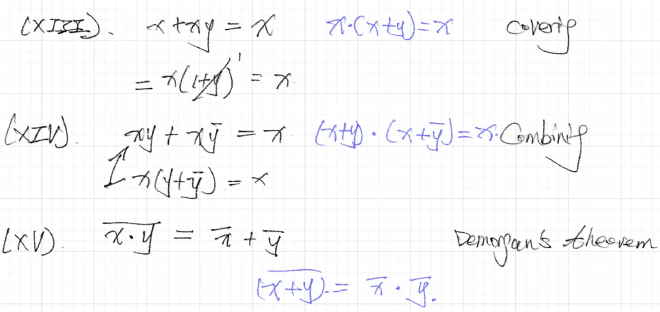 (XIII). x + xy = x x·(x+y) = x covering
= x(1+y)¹ = x
(XIV). xy + xȳ = x (x+y)·(x+ȳ) = x. Combining
x(y+ȳ) = x
(XV). \overline{x·y} = x̄ + ȳ Demorgan's theorem
\overline{(x+y)} = x̄·ȳ.